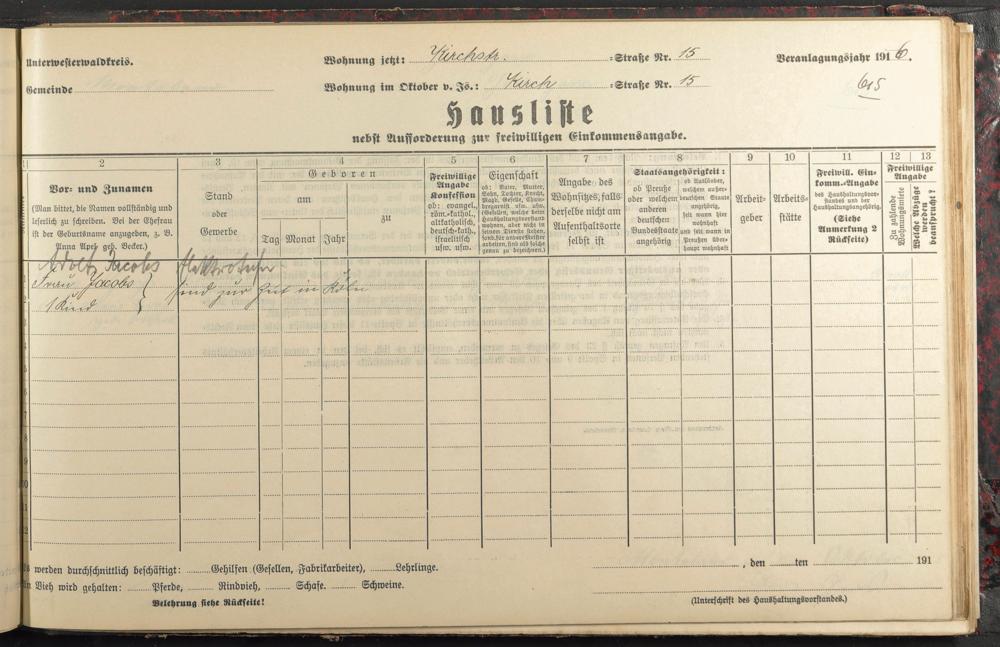 Unterwesterwaldkreis.
Wohnung jetzt: Kirchstr. =Straße Nr. 15
Veranlagungsjahr 1916.
Gemeinde
Wohnung im Oktober v. Js.: Kirch =Straße Nr. 15
615
Hausliste
nebst Aufforderung zur freiwilligen Einkommensangabe.
2 3 4 5 6 7 8 9 10 11 12 13
Vor- und Zunamen
(Man bittet, die Namen vollständig und
leserlich zu schreiben. Bei der Ehefrau
ist der Geburtsname anzugeben, z. B.
Anna Apel geb. Becker.)
Stand
oder
Gewerbe
Geboren
am
zu
Tag Monat Jahr
Freiwillige
Angabe
Konfession
ob: evangel.,
röm.-kathol.,
altkatholisch,
deutsch-kath.,
israelitisch
usw. usw.
Eigenschaft
ob: Vater, Mutter,
Sohn, Tochter, Knecht,
Magd, Geselle, Cham-
bregarnist usw. usw.
(Gesellen, welche beim
Haushaltungsvorstand
wohnen, aber nicht in
seinem Dienste stehen,
sond. für unser Meister
arbeiten, sind als solche
genau zu bezeichnen.)
Angabe des
Wohnsitzes, falls
derselbe nicht am
Aufenthaltsorte
selbst ist
Staatsangehörigkeit:
ob Preuße
oder welchem
anderen
deutschen
Bundesstaate
angehörig
ob Ausländer,
welchem außer-
deutschen Staate
angehörig,
seit wann hier
wohnhaft
und seit wann in
Preußen über-
haupt wohnhaft
Arbeit-
geber
Arbeits-
stätte
Freiwill. Ein-
komm.-Angabe
des Haushaltungsvor-
standes und der
Haushaltungsangehörig.
(Siehe
Anmerkung 2
Rückseite)
Freiwillige
Angabe
Zu zahlende
Wohnungsmiete
Welche Abzüge
werden
beansprucht?
Adolf Jacobs
Frau Jacobs
1 Kind
sind zur Zeit in Köln
werden durchschnittlich beschäftigt: Gehilfen (Gesellen, Fabrikarbeiter), Lehrlinge.
, den ten 191
Vieh wird gehalten: Pferde, Rindvieh, Schafe. Schweine.
Belehrung siehe Rückseite!
(Unterschrift des Haushaltungsvorstandes.)